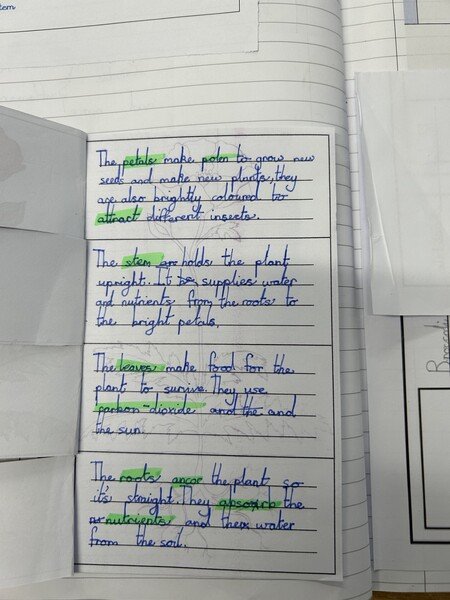 tem
The petals make polen to grow new
seeds and make new plants, they
are also brightly coloured to
attract different insects.
The stem are holds the plant
upright. It be supplies water
and nutrients from the roots to
the bright petals.
The leaves make food for the
plant to survive. They use
carbon-dioxide and the and
the sun.
The roots ancor the plant so
it's straight. They absorb the
nutrients and then water
from the soil.